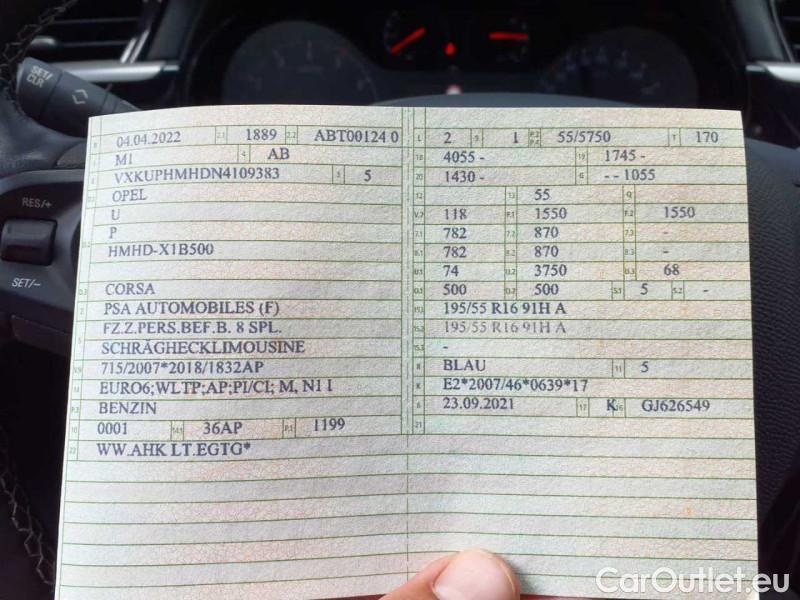 SET/
CLR
RES/+
SET/-
B 04.04.2022 2.1 1889 2.2 ABT00124 0
J M1 4 AB
E VXKUPHMHDN4109383 3 5
D.1 OPEL
U
D.2 P
HMHD-X1B500
D.3 CORSA
2 PSA AUTOMOBILES (F)
5 FZ.Z.PERS.BEF.B. 8 SPL.
5 SCHRÄGHECKLIMOUSINE
V.9 715/2007*2018/1832AP
14 EURO6;WLTP;AP;PI/CI; M, N1 I
P.3 BENZIN
10 0001 14.1 36AP P.1 1199
22 WW.AHK LT.EGTG*
L 2 9 1 P.2 P.4 55/5750 T 170
18 4055 - 19 1745 -
20 1430 - G - - 1055
12 13 55 Q
V.7 118 F.1 1550 F.2 1550
7.1 782 7.2 870 7.3 -
8.1 782 8.2 870 8.3 -
U.1 74 U.2 3750 U.3 68
O.1 500 O.2 500 S.1 5 S.2 -
15.1 195/55 R16 91H A
15.2 195/55 R16 91H A
15.3 -
R BLAU 11 5
K E2*2007/46*0639*17
6 23.09.2021 17 K 16 GJ626549
21
CarOutlet.eu